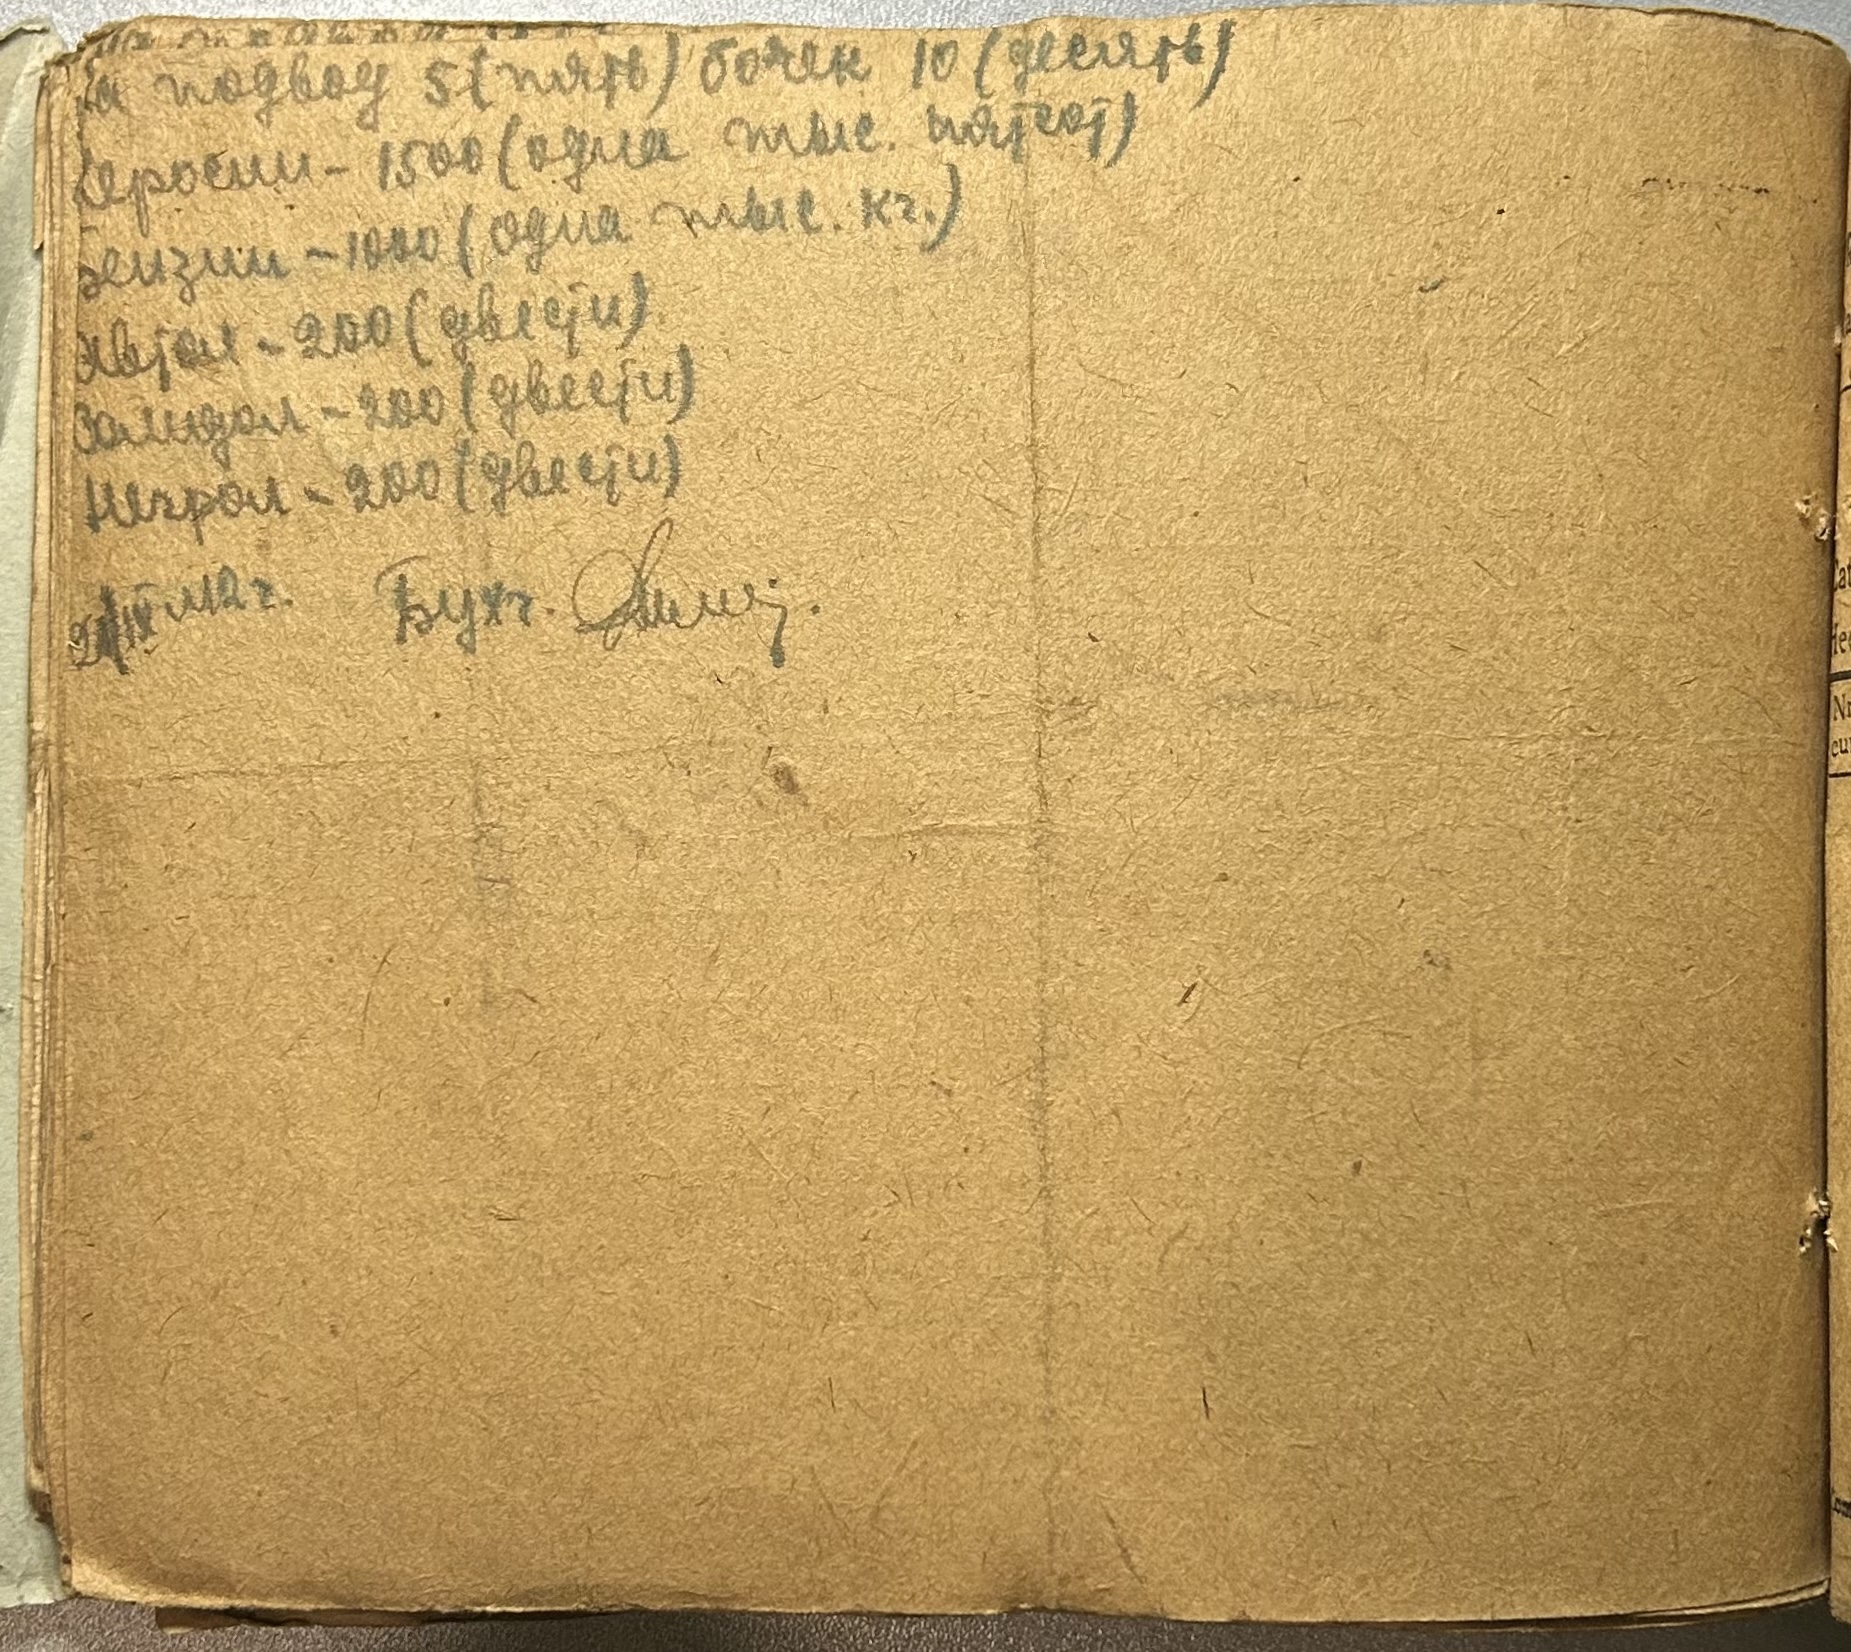 На подвод 5 (пять) бочек 10 (десять)
Керосин - 1500 (одна тыс. пятсот)
Бензин - 1000 (одна тыс. кг.)
Автол - 200 (двести)
Солидол - 200 (двести)
Нигрол - 200 (двести)
IX 42 г. Бухг.
Cat
Nr